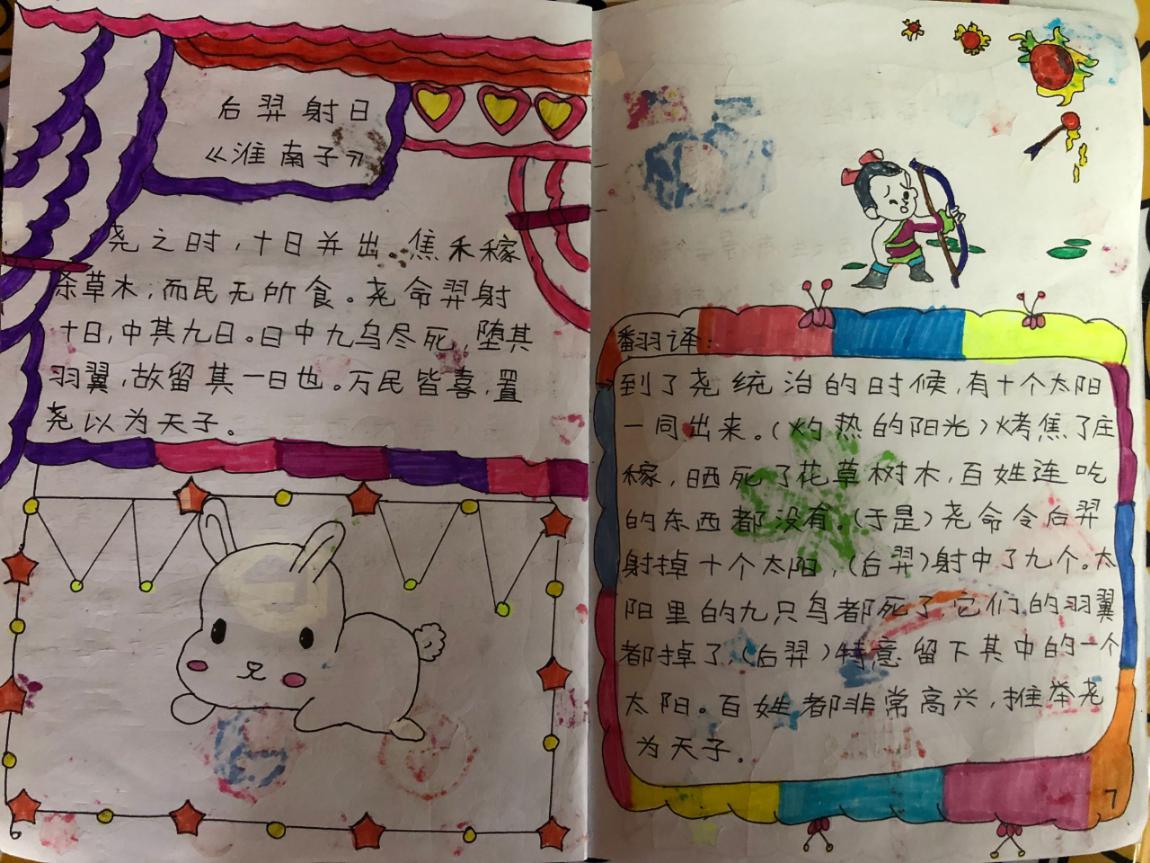 后羿射日
《淮南子》
尧之时，十日并出。焦禾稼
杀草木，而民无所食。尧命羿射
十日，中其九日。日中九乌尽死，堕其
羽翼，故留其一日也。万民皆喜，置
尧以为天子。
翻译：
到了尧统治的时候，有十个太阳
一同出来。（灼热的阳光）烤焦了庄
稼，晒死了花草树木，百姓连吃
的东西都没有，（于是）尧命令后羿
射掉十个太阳，（后羿）射中了九个。太
阳里的九只鸟都死了它们的羽翼
都掉了，（后羿）特意留下其中的一个
太阳。百姓都非常高兴，推举尧
为天子。
7